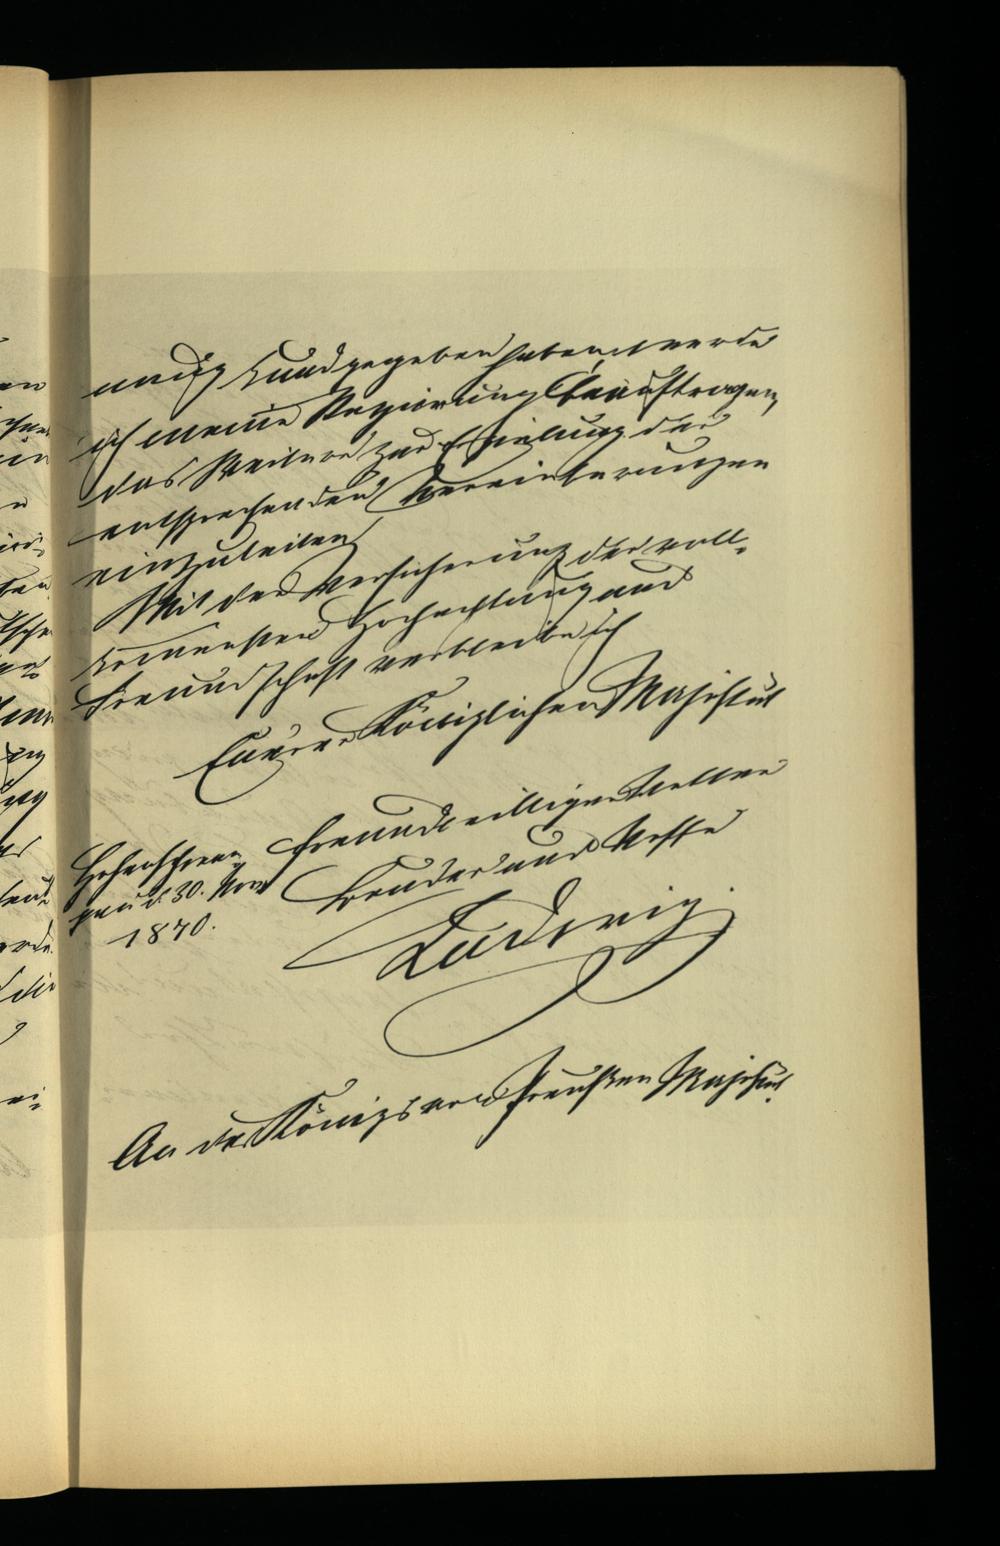 mung kundgegeben haben, werde
ich meine Regierung beauftragen,
das Weitere zur Erzielung der
entsprechenden Vereinbarungen
einzuleiten.
Mit der Versicherung der voll-
kommensten Hochachtung und
Freundschaft verbleibe ich
Euerer Königlichen Majestät
freundwilliger Vetter
Bruder und Neffe
Ludwig
Hohenschwan
gau d. 30. Nov.
1870.
An des Königs von Preußen Majestät.